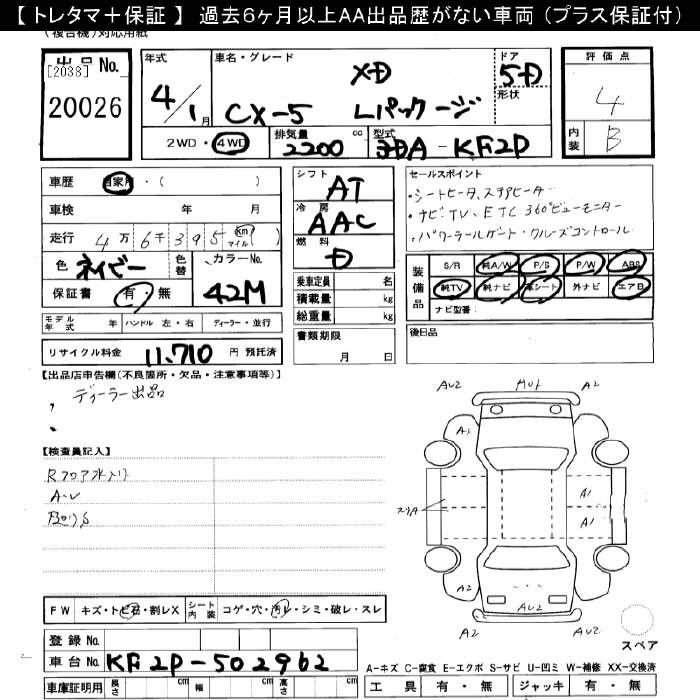 【 トレタマ＋保証 】 過去６ヶ月以上ＡＡ出品歴がない車両（プラス保証付）
(複合機)対応用紙
出品 No.
[2038]
20026
年式 4/1月
車名・グレード XD
CX-5 Lパッケージ
ドア 5D
形状
評価点 4
内装 B
2WD・4WD 排気量 2200 cc 型式 3DA-KF2P
車歴 自家用・( )
車検 年 月
走行 4万6千395 Km マイル ( )
色 ネイビー 色替 カラーNo. 42M
保証書 有・無
モデル年式 年 ハンドル 左・右 ディーラー・並行
リサイクル料金 11,710 円 預託済
シフト AT
冷房 AAC
燃料 D
乗車定員 名
積載量 kg
総重量 kg
書類期限
月 日
セールスポイント
・シートヒータ、ステアヒーター
・ナビ・TV、ETC 360°ビューモニター
・パワーラルゲート・クルーズコントロール
装備品 S/R 純A/W P/S P/W ABS
純TV 純ナビ 革シート 外ナビ エアB
ナビ型番:
後日品
【出品店申告欄(不良箇所・欠品・注意事項等)】
ディーラー出品
【検査員記入】
Rフロア水入り
A・U
AU2 MU1 A2
A1
スリA
A1
A1
A2 A2
AU2
AU2
FW キズ・トビ石・割レX シート内装 コゲ・穴・汚レ・シミ・破レ・スレ
登録 No.
車台 No. KF2P-502962
車庫証明用 長さ cm 幅 cm 高さ cm
スペア
A-キズ C-腐食 E-エクボ S-サビ U-凹ミ W-補修 XX-交換済
工具 有・無 ジャッキ 有・無